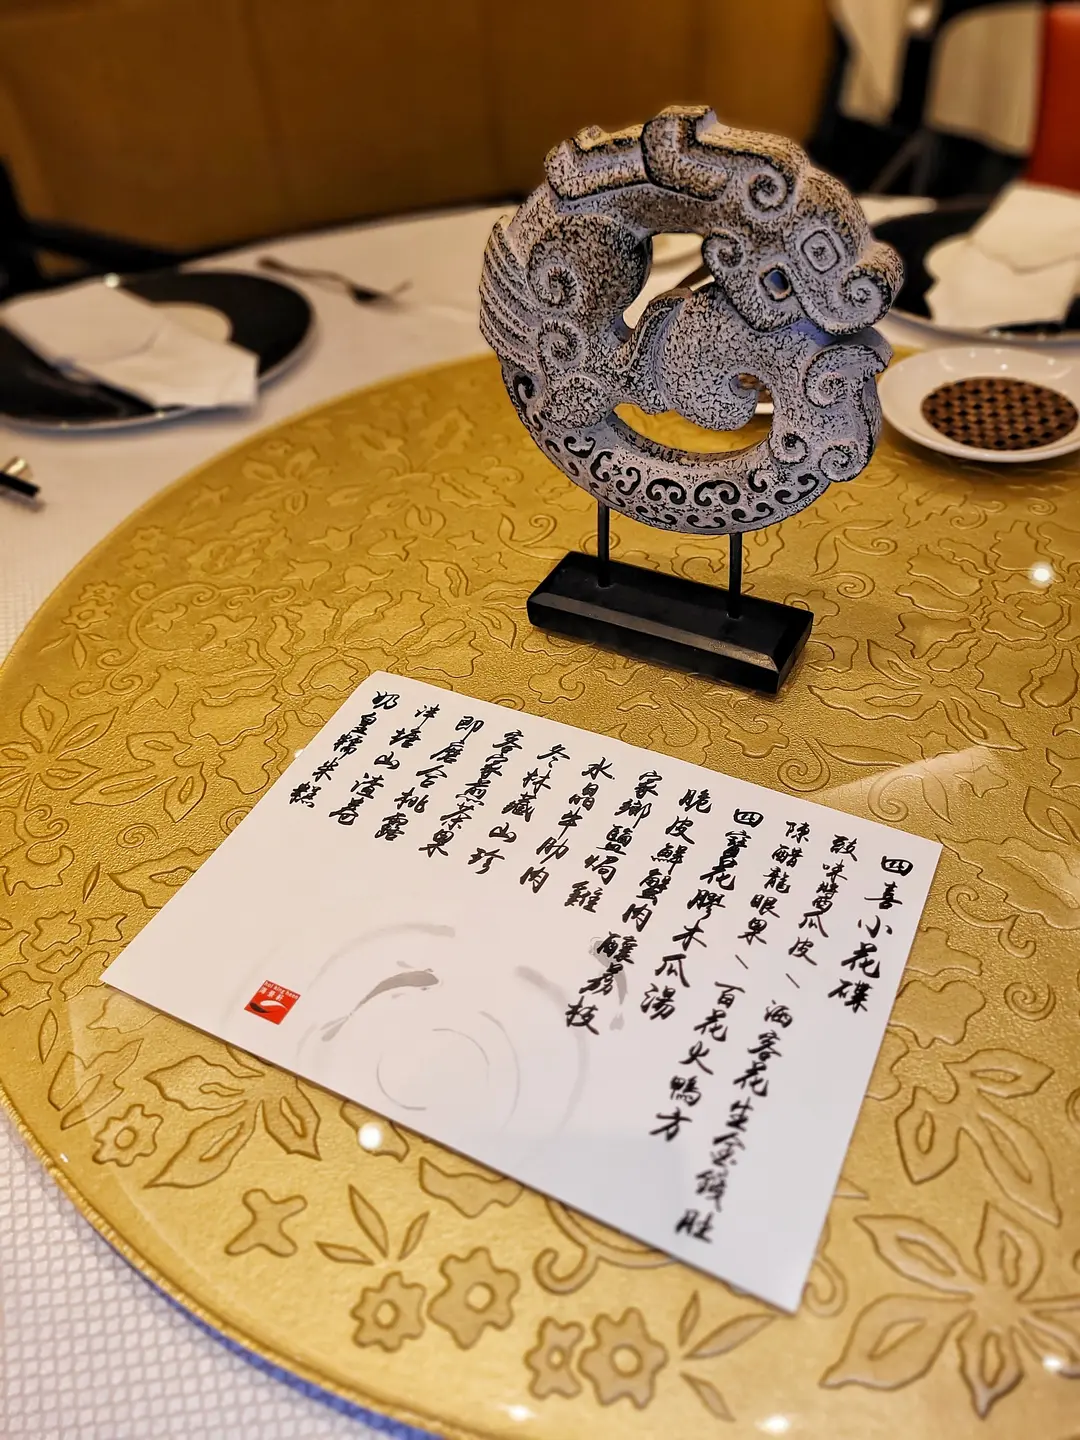 四喜小花碟
豉味醬瓜皮、洒客花生金錢肚
陳醋龍眼果、百花火鴨方
四寶花膠木瓜湯
脆皮鮮蟹肉釀荔枝
家鄉鹽焗雞
水晶牛肋肉
冬林藏山珍
客家煎茶果
即磨合桃露
津塘山渣卷
奶皇糯米糕
hoi king heen
海景軒